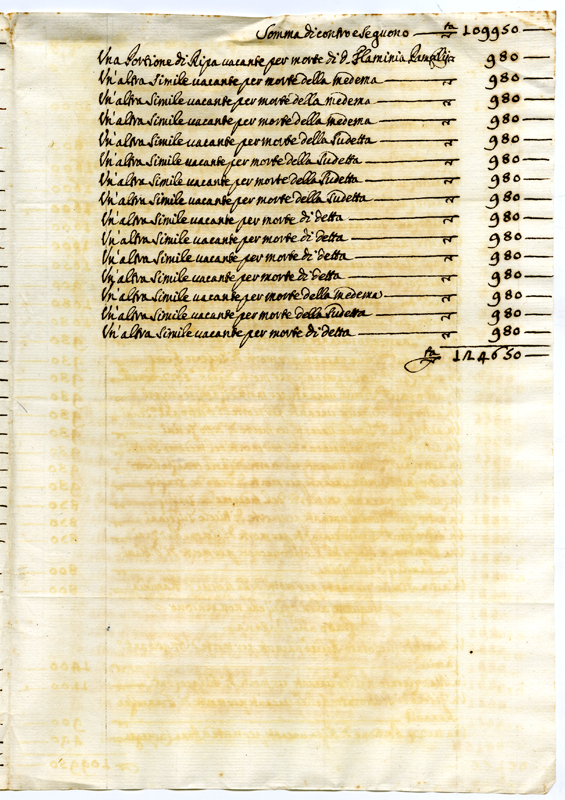 Somma di contro e seguono — 109950 —
Una Portione di Ripa vacante per morte di D. Flaminia 980 —
Un'altra simile vacante per morte della medema — 980 —
Un'altra simile vacante per morte della medema — 980 —
Un'altra simile vacante per morte della medema — 980 —
Un'altra simile vacante per morte della sudetta — 980 —
Un'altra simile vacante per morte della sudetta — 980 —
Un'altra simile vacante per morte della sudetta — 980 —
Un'altra simile vacante per morte della sudetta — 980 —
Un'altra simile vacante per morte di detta — 980 —
Un'altra simile vacante per morte di detta — 980 —
Un'altra simile vacante per morte di detta — 980 —
Un'altra simile vacante per morte di detta — 980 —
Un'altra simile vacante per morte della medema — 980 —
Un'altra simile vacante per morte della sudetta — 980 —
Un'altra simile vacante per morte di detta — 980 —
124650 —